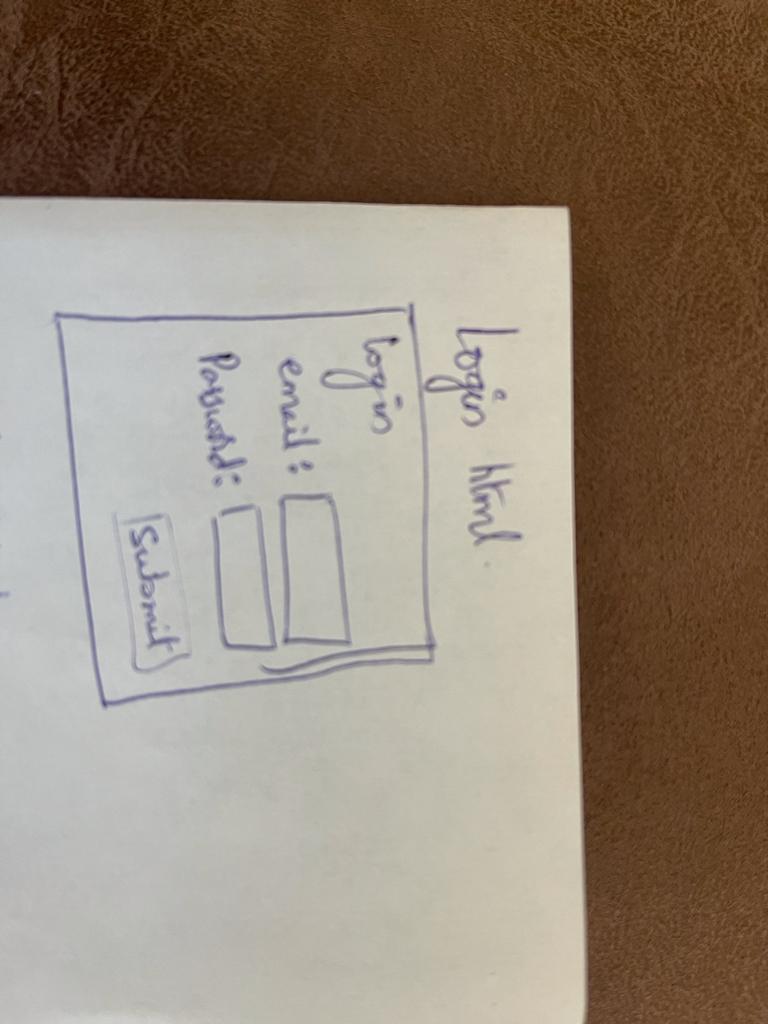 Login html.
Login
email:
Password:
Submit